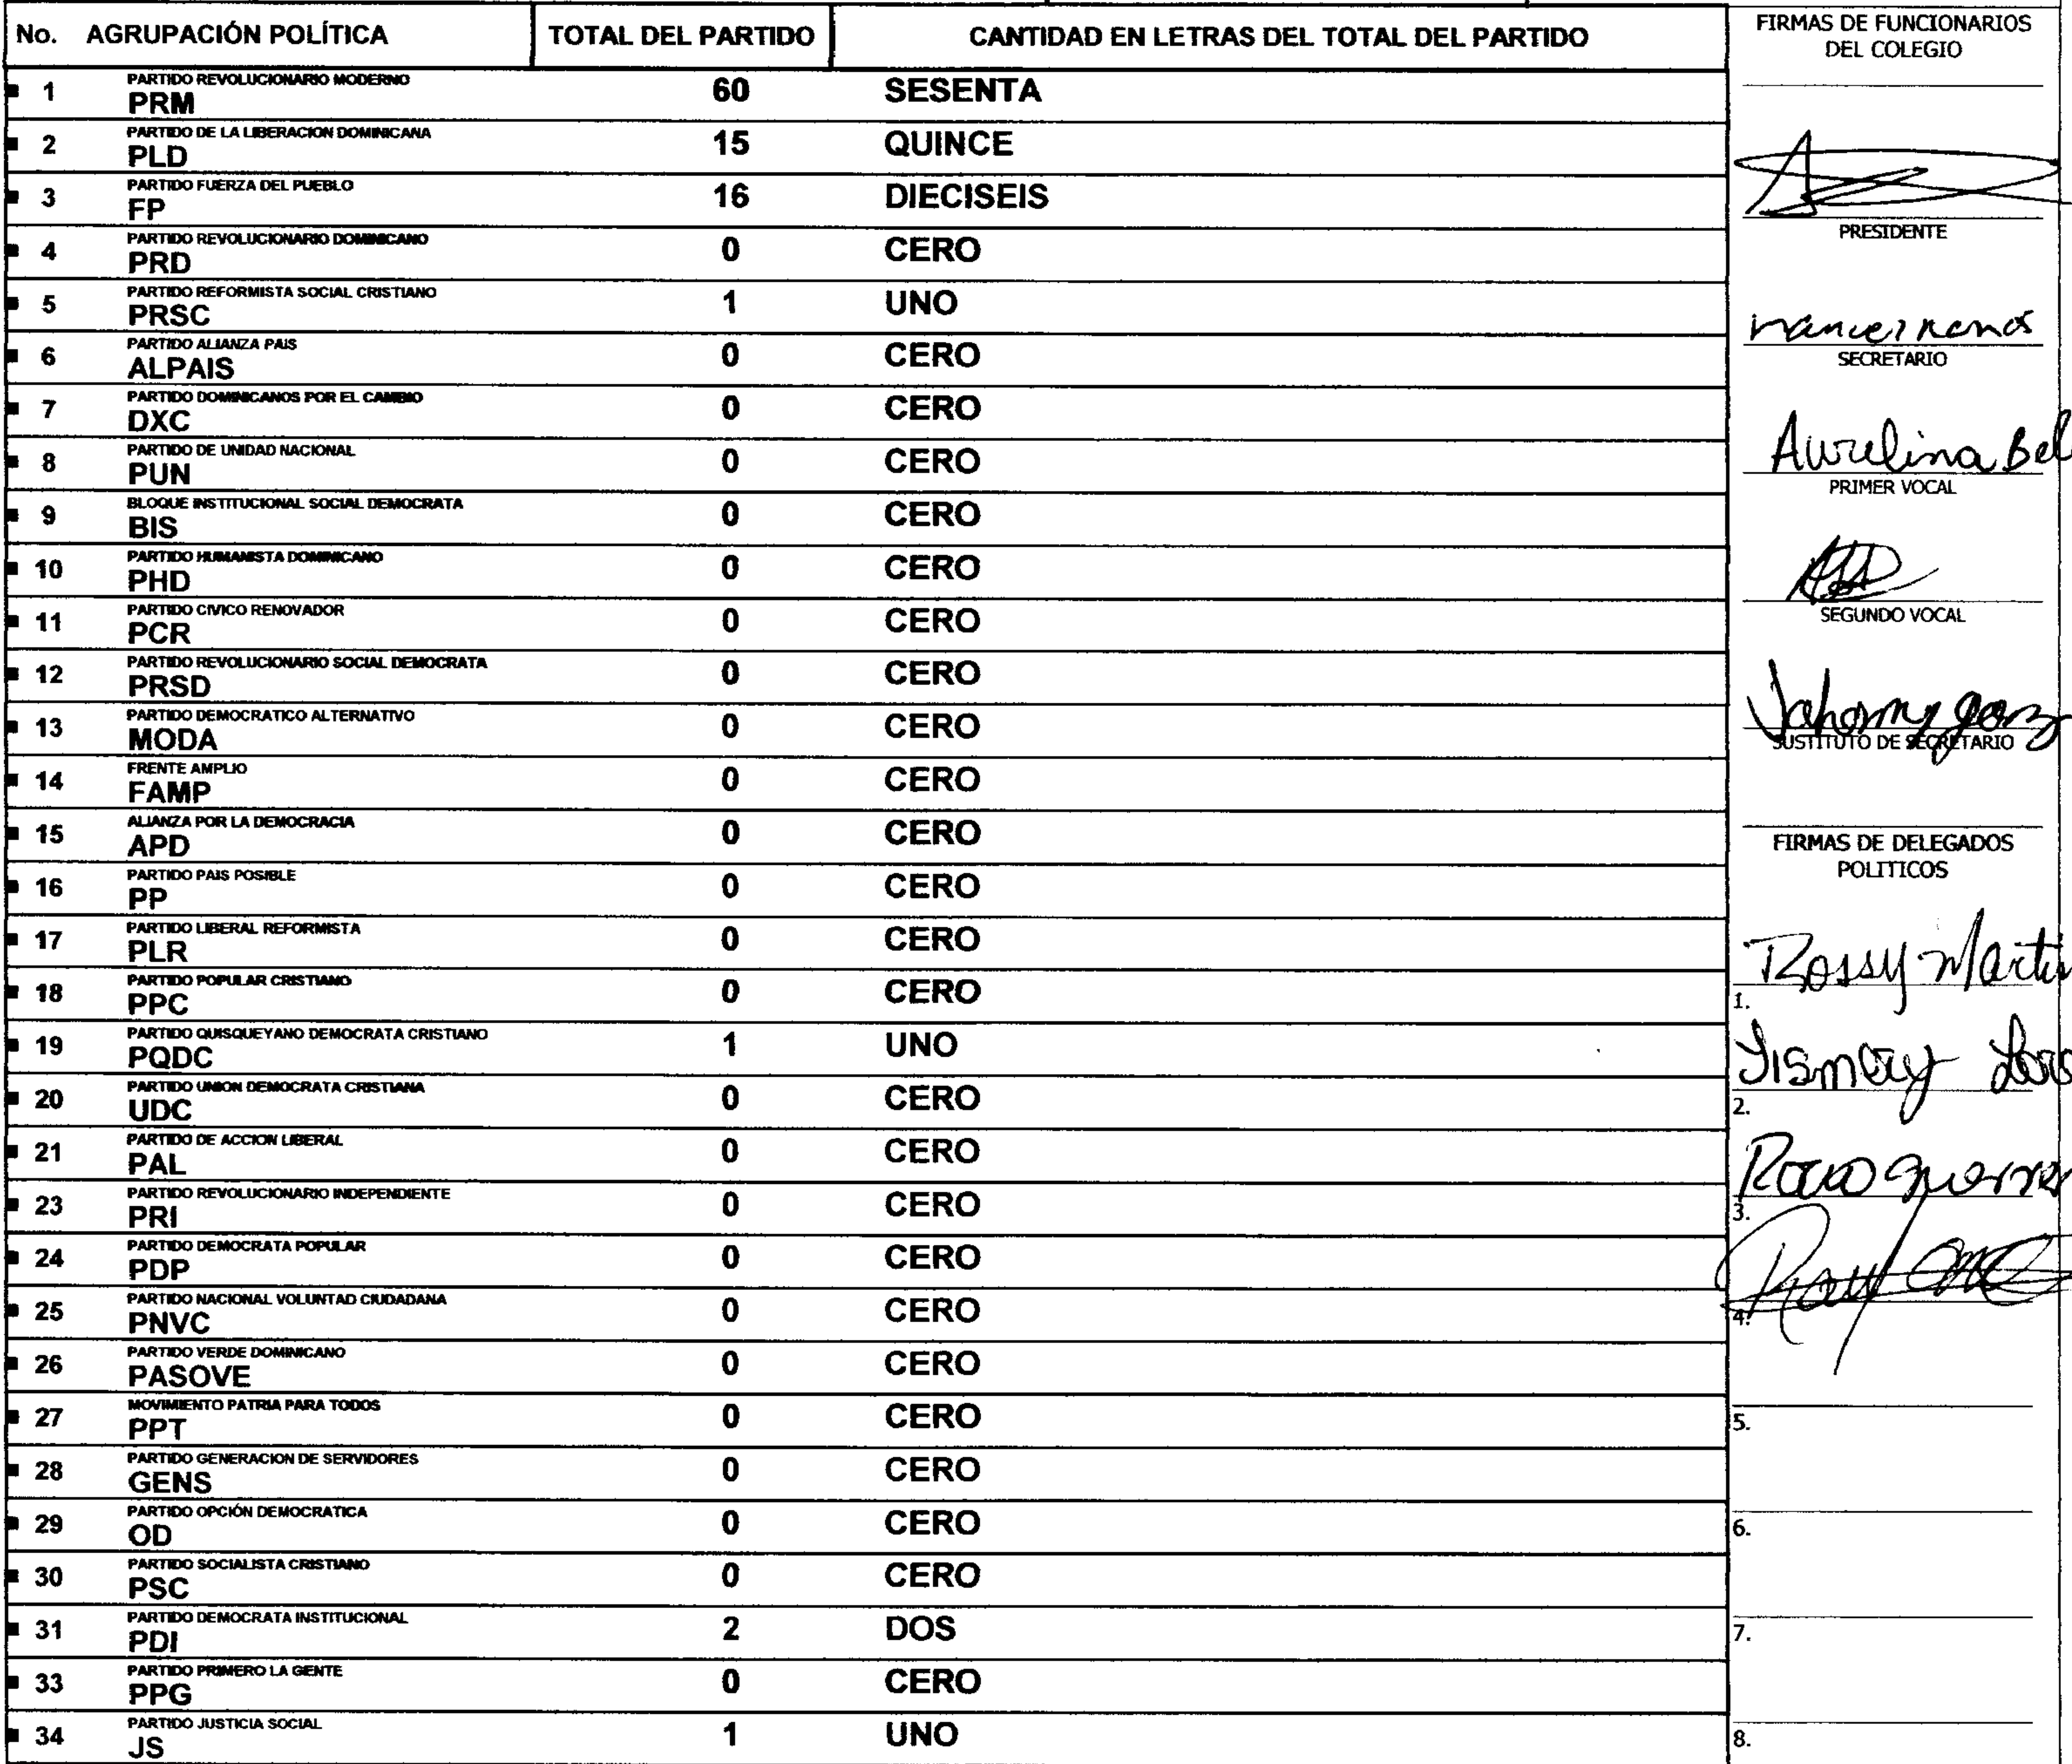 No. AGRUPACIÓN POLÍTICA TOTAL DEL PARTIDO CANTIDAD EN LETRAS DEL TOTAL DEL PARTIDO
PARTIDO REVOLUCIONARIO MODERNO
1 PRM 60 SESENTA
PARTIDO DE LA LIBERACION DOMINICANA
2 PLD 15 QUINCE
PARTIDO FUERZA DEL PUEBLO
3 FP 16 DIECISEIS
PARTIDO REVOLUCIONARIO DOMINICANO
4 PRD 0 CERO
PARTIDO REFORMISTA SOCIAL CRISTIANO
5 PRSC 1 UNO
PARTIDO ALIANZA PAIS
6 ALPAIS 0 CERO
PARTIDO DOMINICANOS POR EL CAMBIO
7 DXC 0 CERO
PARTIDO DE UNIDAD NACIONAL
8 PUN 0 CERO
BLOQUE INSTITUCIONAL SOCIAL DEMOCRATA
9 BIS 0 CERO
PARTIDO HUMANISTA DOMINICANO
10 PHD 0 CERO
PARTIDO CIVICO RENOVADOR
11 PCR 0 CERO
PARTIDO REVOLUCIONARIO SOCIAL DEMOCRATA
12 PRSD 0 CERO
PARTIDO DEMOCRATICO ALTERNATIVO
13 MODA 0 CERO
FRENTE AMPLIO
14 FAMP 0 CERO
ALIANZA POR LA DEMOCRACIA
15 APD 0 CERO
PARTIDO PAIS POSIBLE
16 PP 0 CERO
PARTIDO LIBERAL REFORMISTA
17 PLR 0 CERO
PARTIDO POPULAR CRISTIANO
18 PPC 0 CERO
PARTIDO QUISQUEYANO DEMOCRATA CRISTIANO
19 PQDC 1 UNO
PARTIDO UNION DEMOCRATA CRISTIANA
20 UDC 0 CERO
PARTIDO DE ACCION LIBERAL
21 PAL 0 CERO
PARTIDO REVOLUCIONARIO INDEPENDIENTE
23 PRI 0 CERO
PARTIDO DEMOCRATA POPULAR
24 PDP 0 CERO
PARTIDO NACIONAL VOLUNTAD CIUDADANA
25 PNVC 0 CERO
PARTIDO VERDE DOMINICANO
26 PASOVE 0 CERO
MOVIMIENTO PATRIA PARA TODOS
27 PPT 0 CERO
PARTIDO GENERACION DE SERVIDORES
28 GENS 0 CERO
PARTIDO OPCIÓN DEMOCRATICA
29 OD 0 CERO
PARTIDO SOCIALISTA CRISTIANO
30 PSC 0 CERO
PARTIDO DEMOCRATA INSTITUCIONAL
31 PDI 2 DOS
PARTIDO PRIMERO LA GENTE
33 PPG 0 CERO
PARTIDO JUSTICIA SOCIAL
34 JS 1 UNO
FIRMAS DE FUNCIONARIOS
DEL COLEGIO
PRESIDENTE
SECRETARIO
Aurelina Bel
PRIMER VOCAL
SEGUNDO VOCAL
SUSTITUTO DE SECRETARIO
FIRMAS DE DELEGADOS
POLITICOS
Rossy Marti
1.
2.
3.
4.
5.
6.
7.
8.